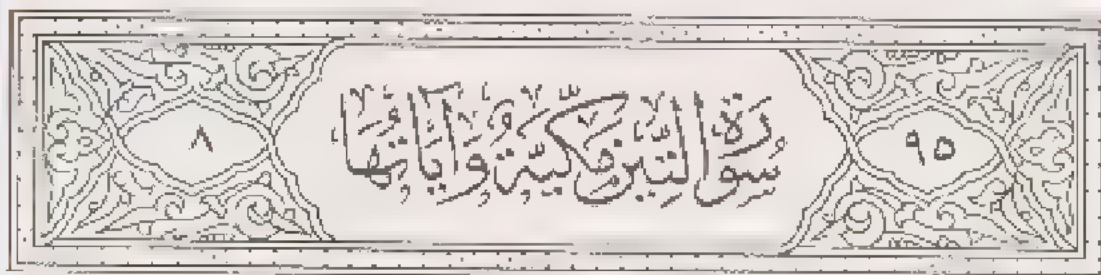 ٩٥
سورة التين مكية وآياتها
٨